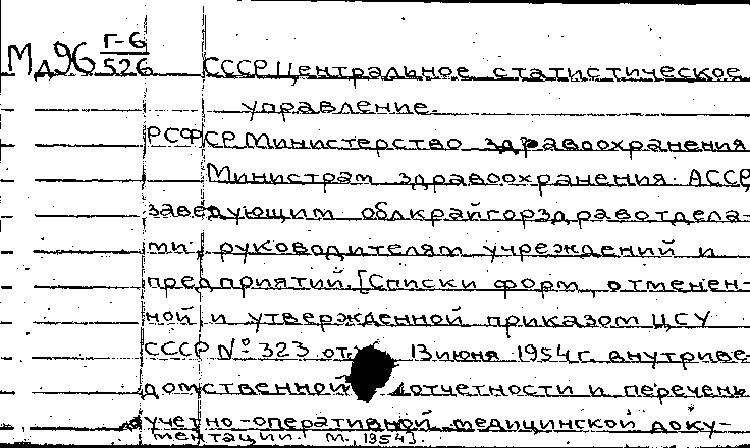 Мд96 Г-6/526 СССР Центральное статистическое
управление.
РСФСР Министерство здравоохранения
Министрам здравоохранения АССР
заведующим облкрайгорздравотдела-
ми, руководителям учреждений и
предприятий. [Списки форм, отменен-
ной и утвержденной приказом ЦСУ
СССР № 323 от 13 июня 1954 г. внутриве-
домственной отчетности и перечень
учетно-оперативной медицинской доку-
ментации. М., 1954].